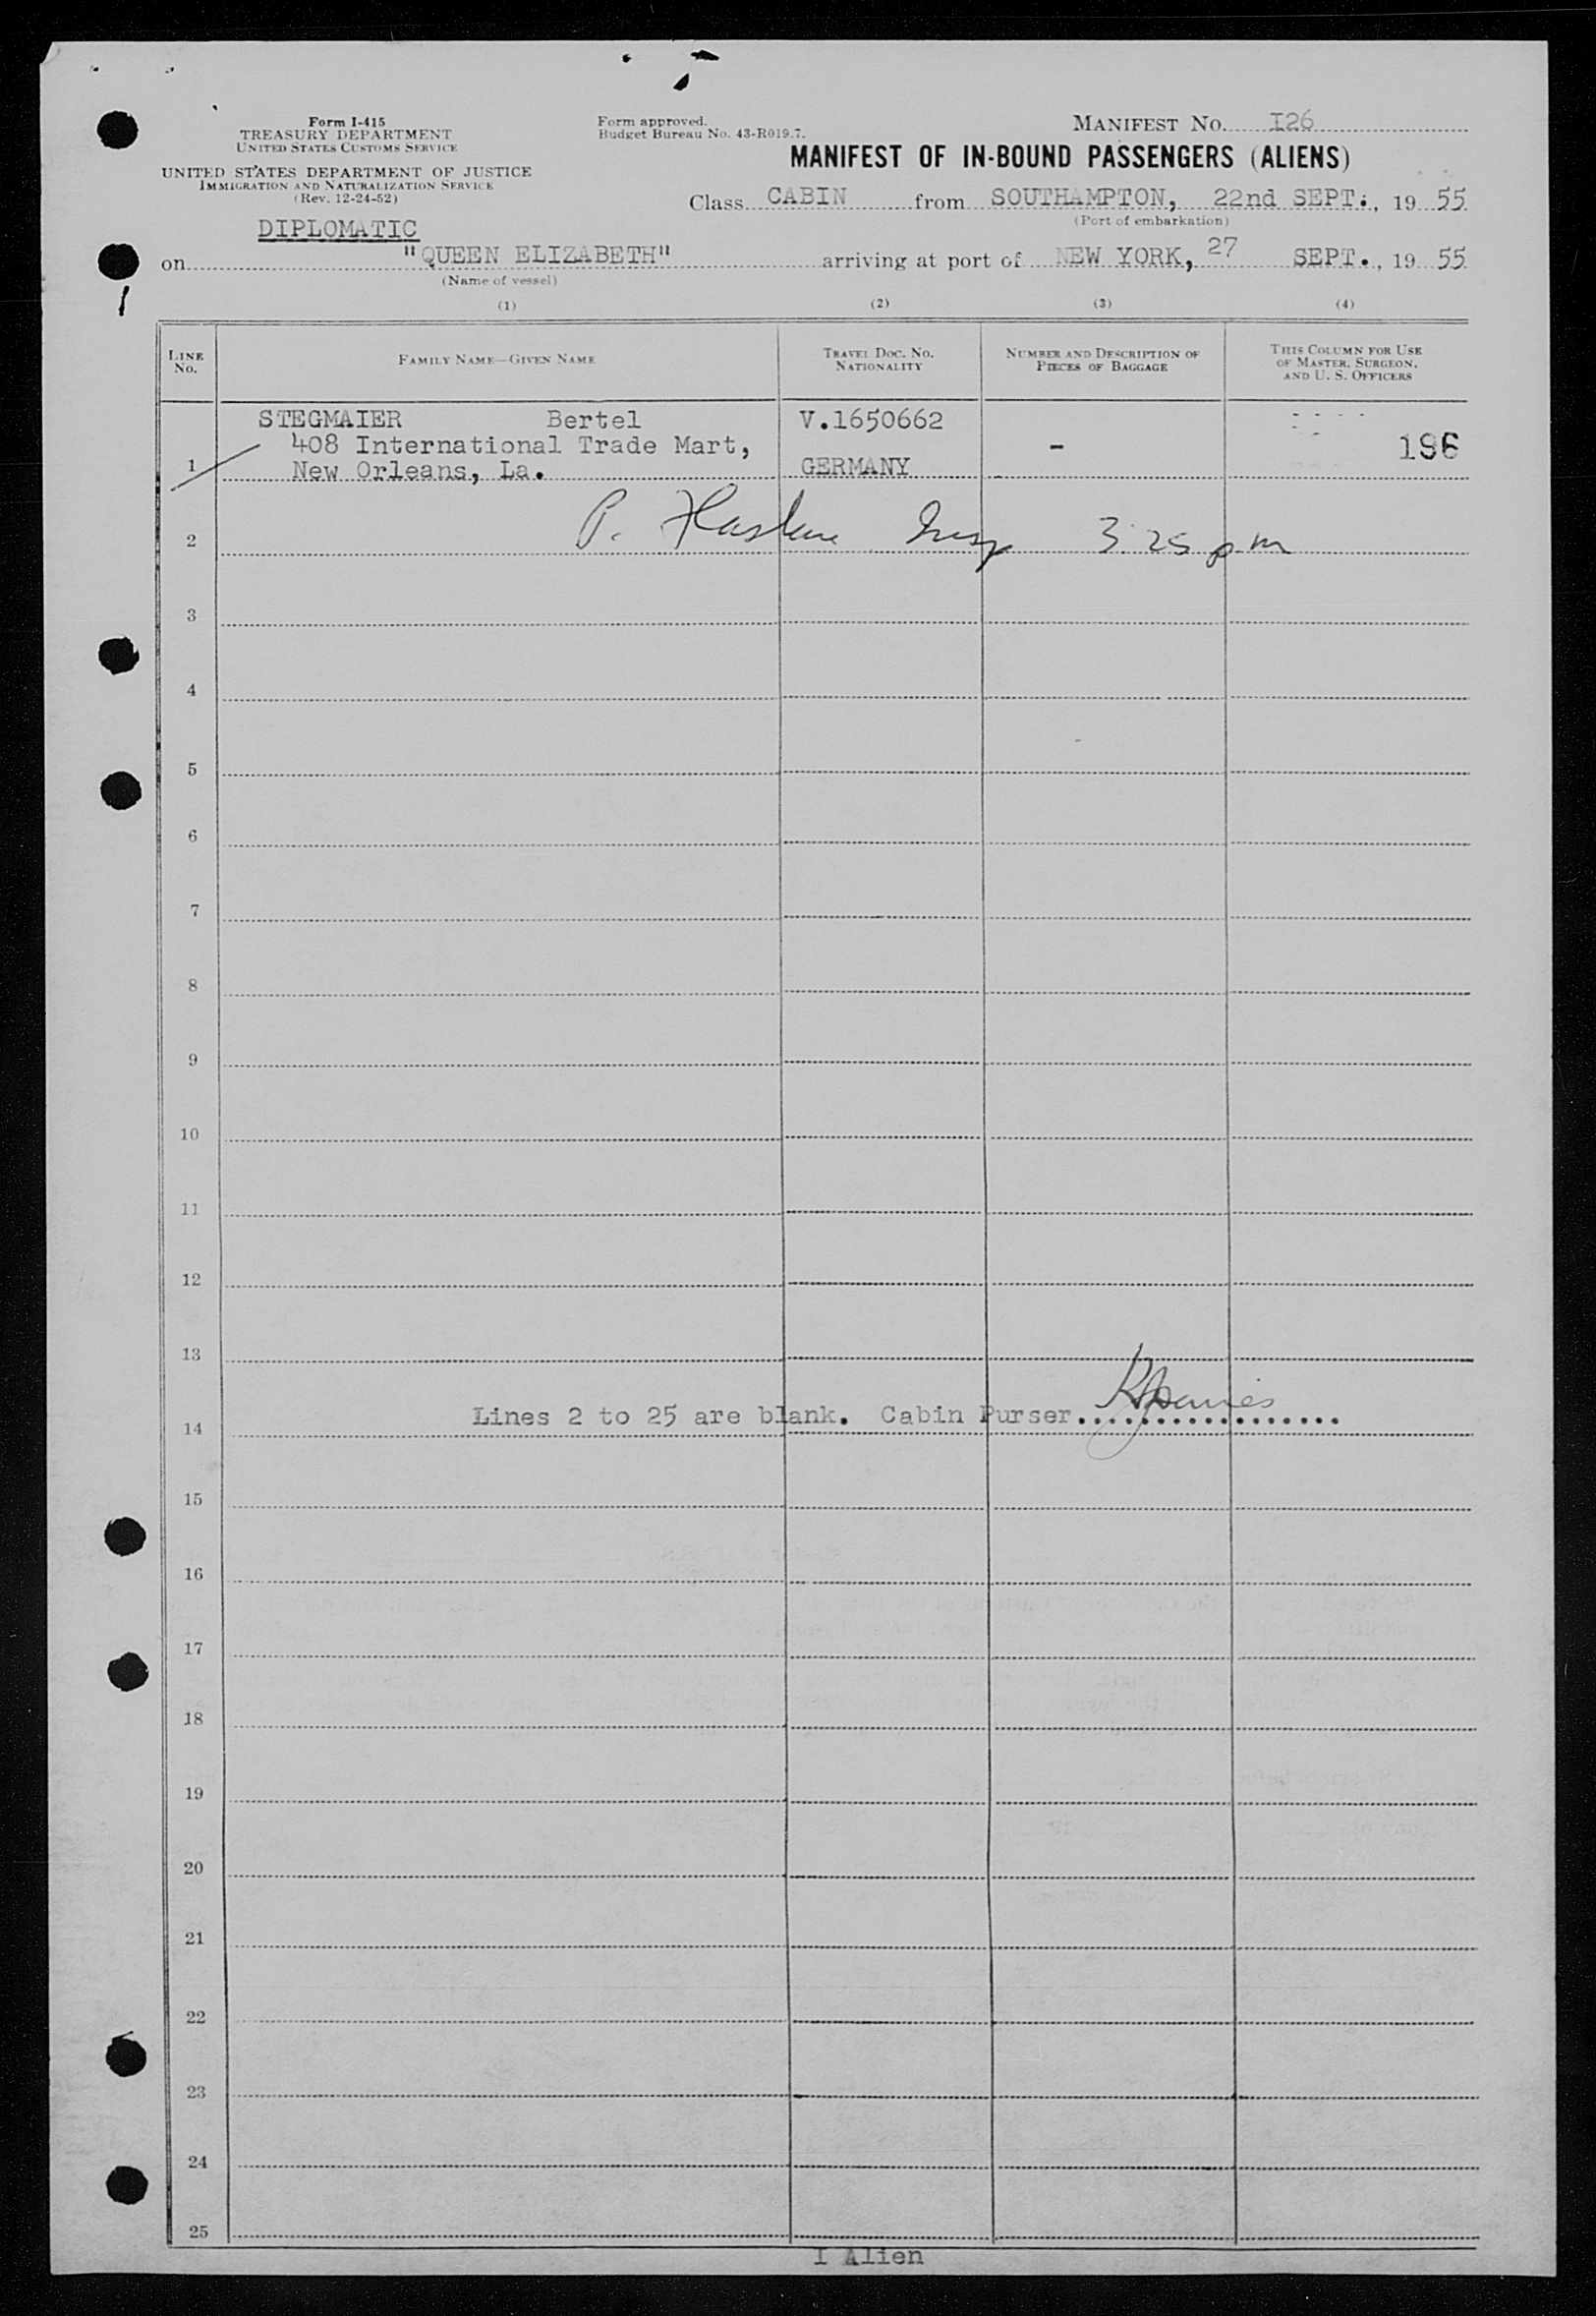 Form I-415
TREASURY DEPARTMENT
UNITED STATES CUSTOMS SERVICE
UNITED STATES DEPARTMENT OF JUSTICE
IMMIGRATION AND NATURALIZATION SERVICE
(Rev. 12-24-52)
Form approved.
Budget Bureau No. 43-R019.7.
MANIFEST No. I26
MANIFEST OF IN-BOUND PASSENGERS (ALIENS)
Class CABIN from SOUTHAMPTON, 22nd SEPT., 19 55
(Port of embarkation)
DIPLOMATIC
on "QUEEN ELIZABETH" arriving at port of NEW YORK, 27 SEPT., 19 55
(Name of vessel)
(1) (2) (3) (4)
LINE No. FAMILY NAME—GIVEN NAME TRAVEL DOC. NO. NATIONALITY NUMBER AND DESCRIPTION OF PIECES OF BAGGAGE THIS COLUMN FOR USE OF MASTER, SURGEON, AND U. S. OFFICERS
STEGMAIER Bertel V.1650662
408 International Trade Mart, - 196
1 New Orleans, La. GERMANY
2 P. 3:25 pm
3
4
5
6
7
8
9
10
11
12
13
Lines 2 to 25 are blank. Cabin Purser..................
14
15
16
17
18
19
20
21
22
23
24
25
I Alien